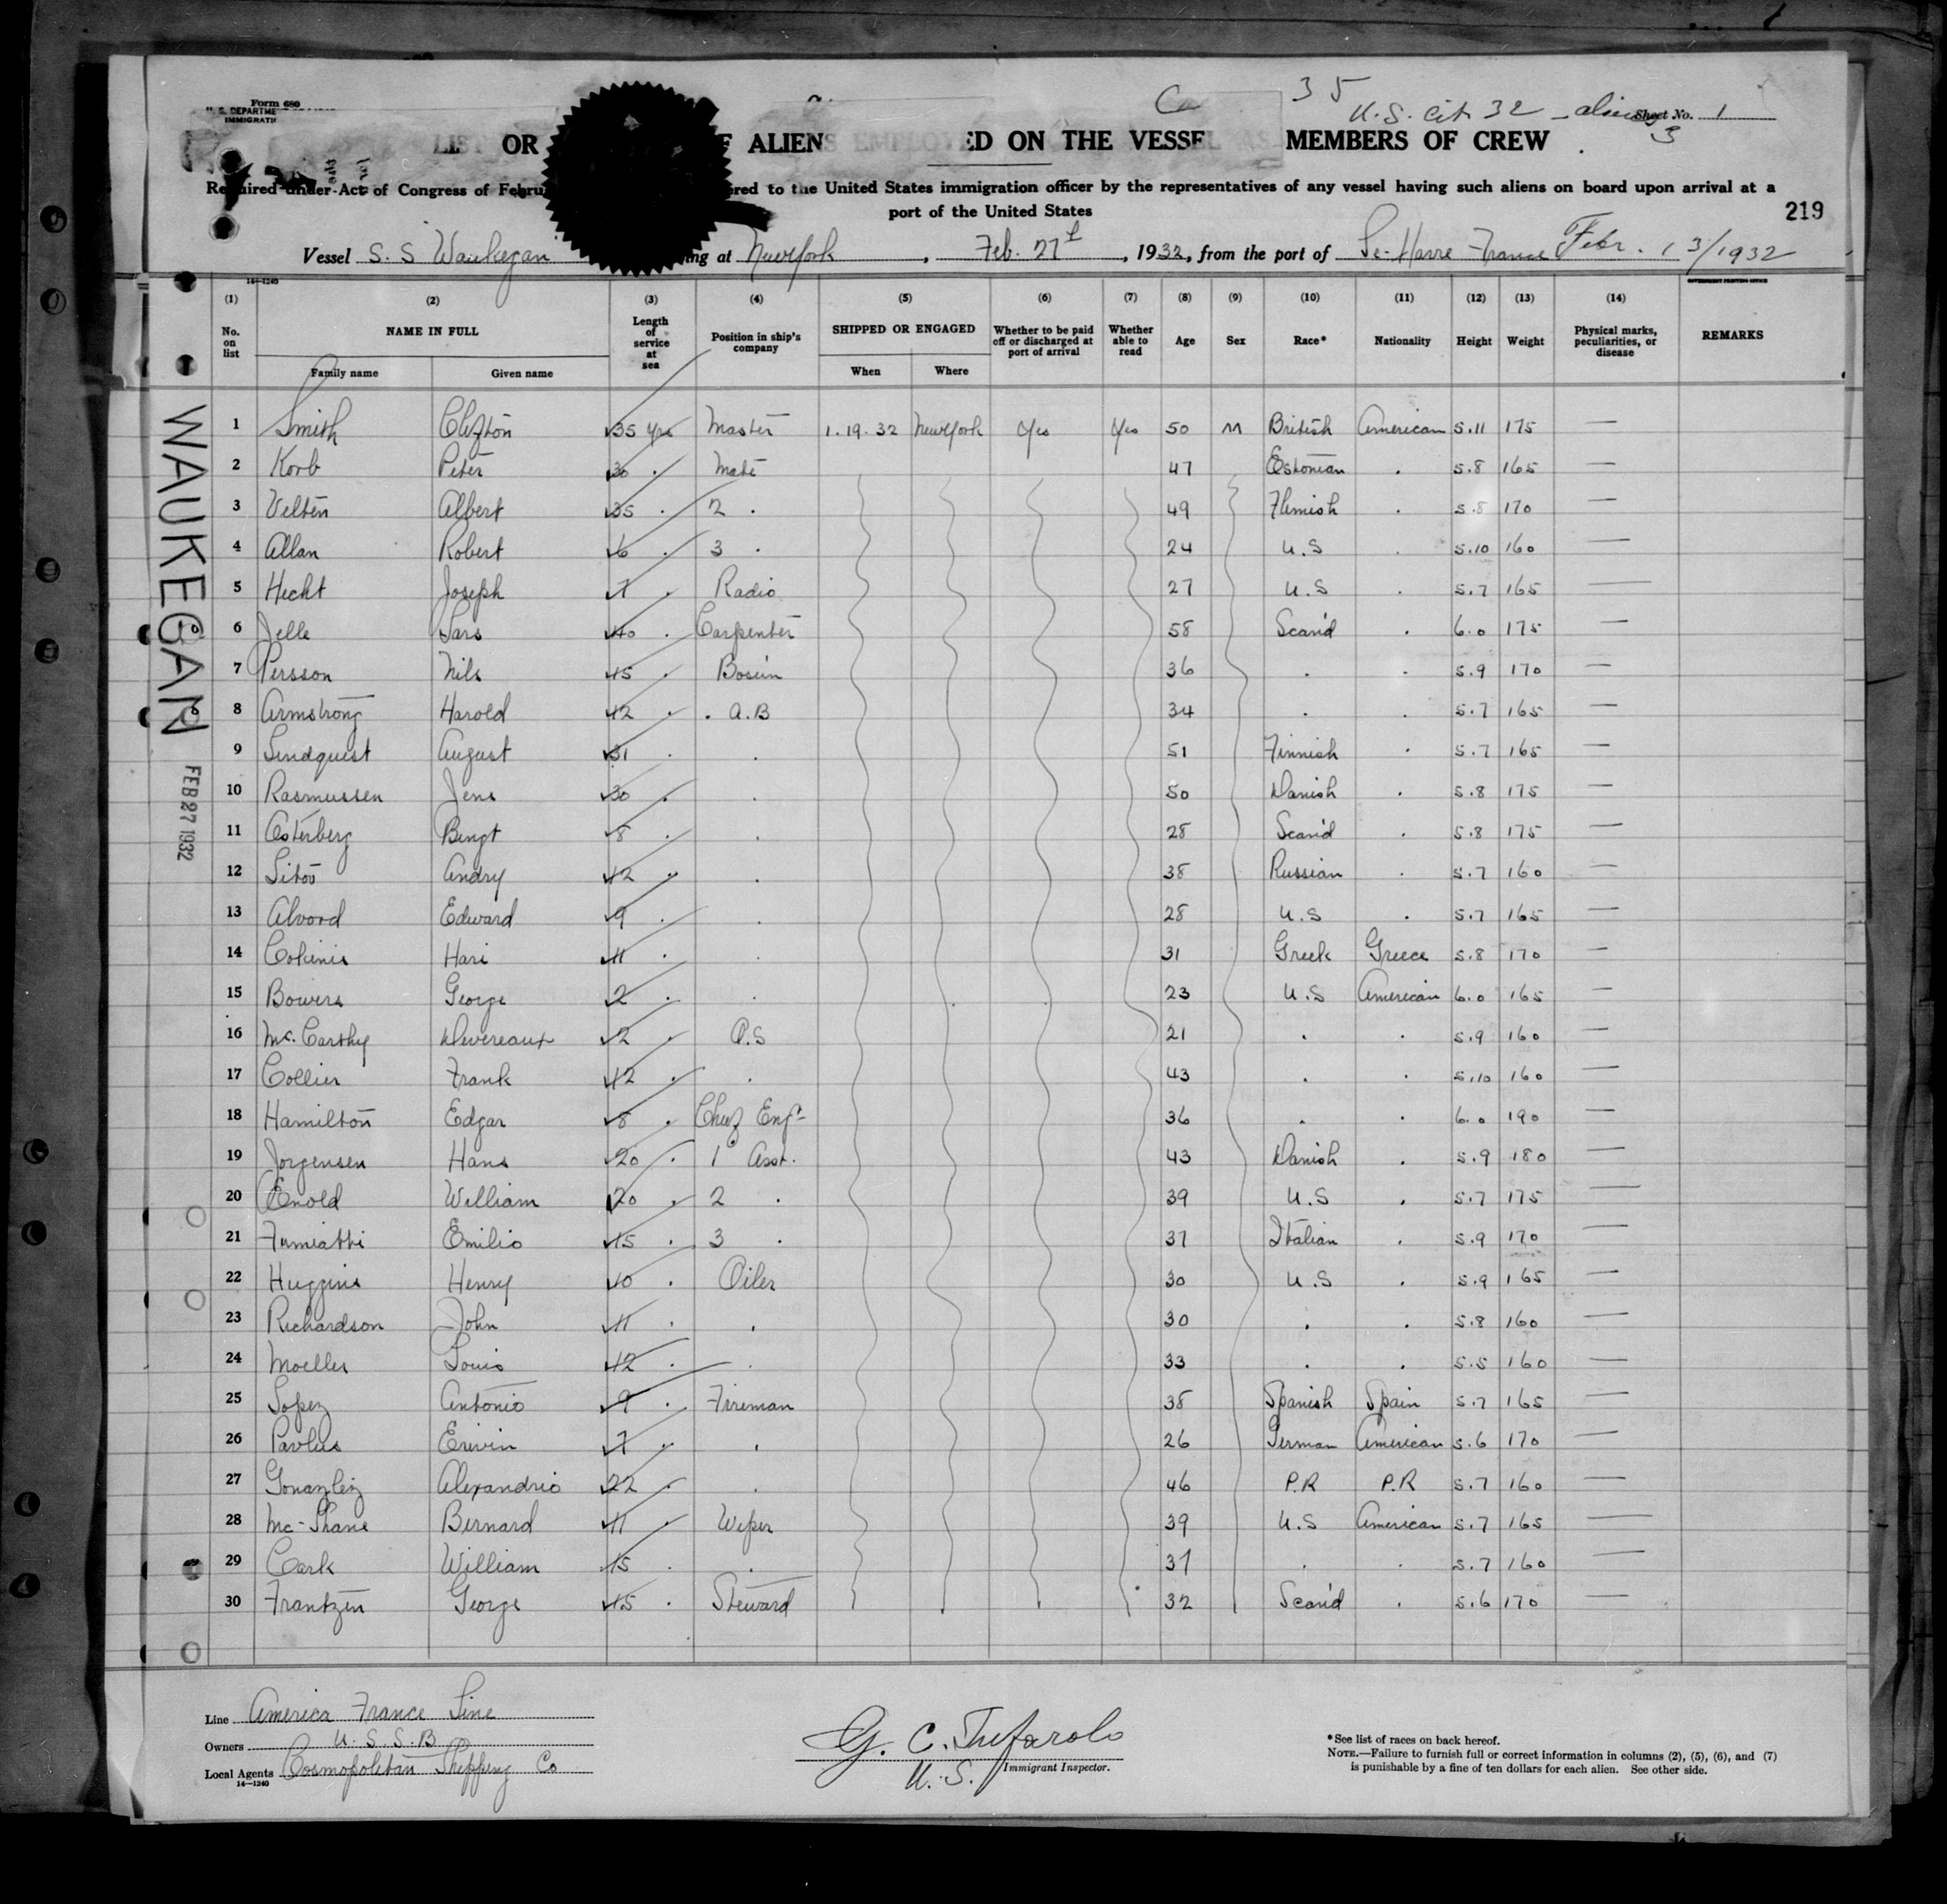 Form 680
U. S. DEPARTME
IMMIGRATI
35
U.S. Cit 32 - aliens 3
Sheet No. 1
LIST OR F ALIENS EMPLOYED ON THE VESSEL AS MEMBERS OF CREW
Required under Act of Congress of Febru ered to the United States immigration officer by the representatives of any vessel having such aliens on board upon arrival at a
port of the United States
219
Vessel S. S Waukegan ng at New York, Feb. 27th, 1932, from the port of Le-Havre France Febr. 13/1932
14-1240
(1) (2) (3) (4) (5) (6) (7) (8) (9) (10) (11) (12) (13) (14)
No. on list NAME IN FULL Length of service at sea Position in ship's company SHIPPED OR ENGAGED Whether to be paid off or discharged at port of arrival Whether able to read Age Sex Race* Nationality Height Weight Physical marks, peculiarities, or disease REMARKS
Family name Given name When Where
1 Smith Clifton 35 yrs Master 1.19.32 New York Yes Yes 50 M British American 5.11 175 —
2 Korb Peter 30 . Mate 47 Estonian . 5.8 165 —
3 Velten Albert 35 . 2 . 49 Flemish . 5.8 170 —
4 Allan Robert 6 . 3 . 24 U.S . 5.10 160 —
5 Hecht Joseph 7 . Radio 27 U.S . 5.7 165 —
6 Jelle Lars 40 . Carpenter 58 Scan'd . 6.0 175 —
7 Persson Nils 15 . Bosun 36 . . 5.9 170 —
8 Armstrong Harold 12 . . A.B 34 . . 5.7 165 —
9 Lindquist August 31 . . 51 Finnish . 5.7 165 —
10 Rasmussen Jens 30 . . 50 Danish . 5.8 175 —
11 Osterberg Bengt 8 . . 28 Scan'd . 5.8 175 —
12 Sitov Andry 12 . . 38 Russian . 5.7 160 —
13 Alvord Edward 9 . . 28 U.S . 5.7 165 —
14 Cokinis Hari 11 . . 31 Greek Greece 5.8 170 —
15 Bowers George 2 . . 23 U.S American 6.0 165 —
16 Mc. Carthy Devereaux 2 . O.S 21 . . 5.9 160 —
17 Collier Frank 12 . . 43 . . 5.10 160 —
18 Hamilton Edgar 8 . Chief Engr 36 . . 6.0 190 —
19 Jorgensen Hans 20 . 1 Asst. 43 Danish . 5.9 180 —
20 Enold William 20 . 2 . 39 U.S . 5.7 175 —
21 Fumiatti Emilio 15 . 3 . 37 Italian . 5.9 170 —
22 Huggins Henry 10 . Oiler 30 U.S . 5.9 165 —
23 Richardson John 11 . . 30 . . 5.8 160 —
24 Moeller Louis 12 . . 33 . . 5.5 160 —
25 Lopez Antonio 9 . Fireman 38 Spanish Spain 5.7 165 —
26 Pavlus Erwin 7 . . 26 German American 5.6 170 —
27 Gonazlez Alexandrio 22 . . 46 P.R P.R 5.7 160 —
28 Mc-Shane Bernard 11 . Wiper 39 U.S American 5.7 165 —
29 Cark William 15 . . 37 . . 5.7 160 —
30 Frantzen George 15 . Steward 32 Scan'd . 5.6 170 —
WAUKEGAN
FEB 27 1932
Line America France Line
Owners U. S. S. B
Local Agents Cosmopolitan Shipping Co
14-1240
G. C. Tufarolo
U. S. Immigrant Inspector.
*See list of races on back hereof.
NOTE.—Failure to furnish full or correct information in columns (2), (5), (6), and (7)
is punishable by a fine of ten dollars for each alien. See other side.